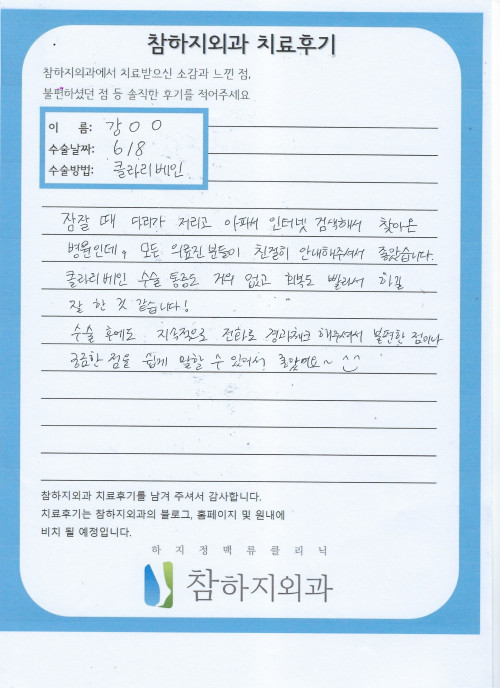 참하지외과 치료후기
참하지외과에서 치료받으신 소감과 느낀 점,
불편하셨던 점 등 솔직한 후기를 적어주세요
이 름: 강OO
수술날짜: 6/8
수술방법: 클라리베인
잠잘 때 다리가 저리고 아파서 인터넷 검색해서 찾아온
병원인데, 모든 의료진분들이 친절히 안내해주셔서 좋았습니다.
클라리베인 수술 통증도 거의 없고 회복도 빨라서 하길
잘 한 것 같습니다!
수술 후에도 지속적으로 전화로 경과체크 해주셔서 불편한 점이나
궁금한 점을 쉽게 말할 수 있어서 좋았어요~ ^^
참하지외과 치료후기를 남겨 주셔서 감사합니다.
치료후기는 참하지외과의 블로그, 홈페이지 및 원내에
비치 될 예정입니다.
하지정맥류클리닉
참하지외과